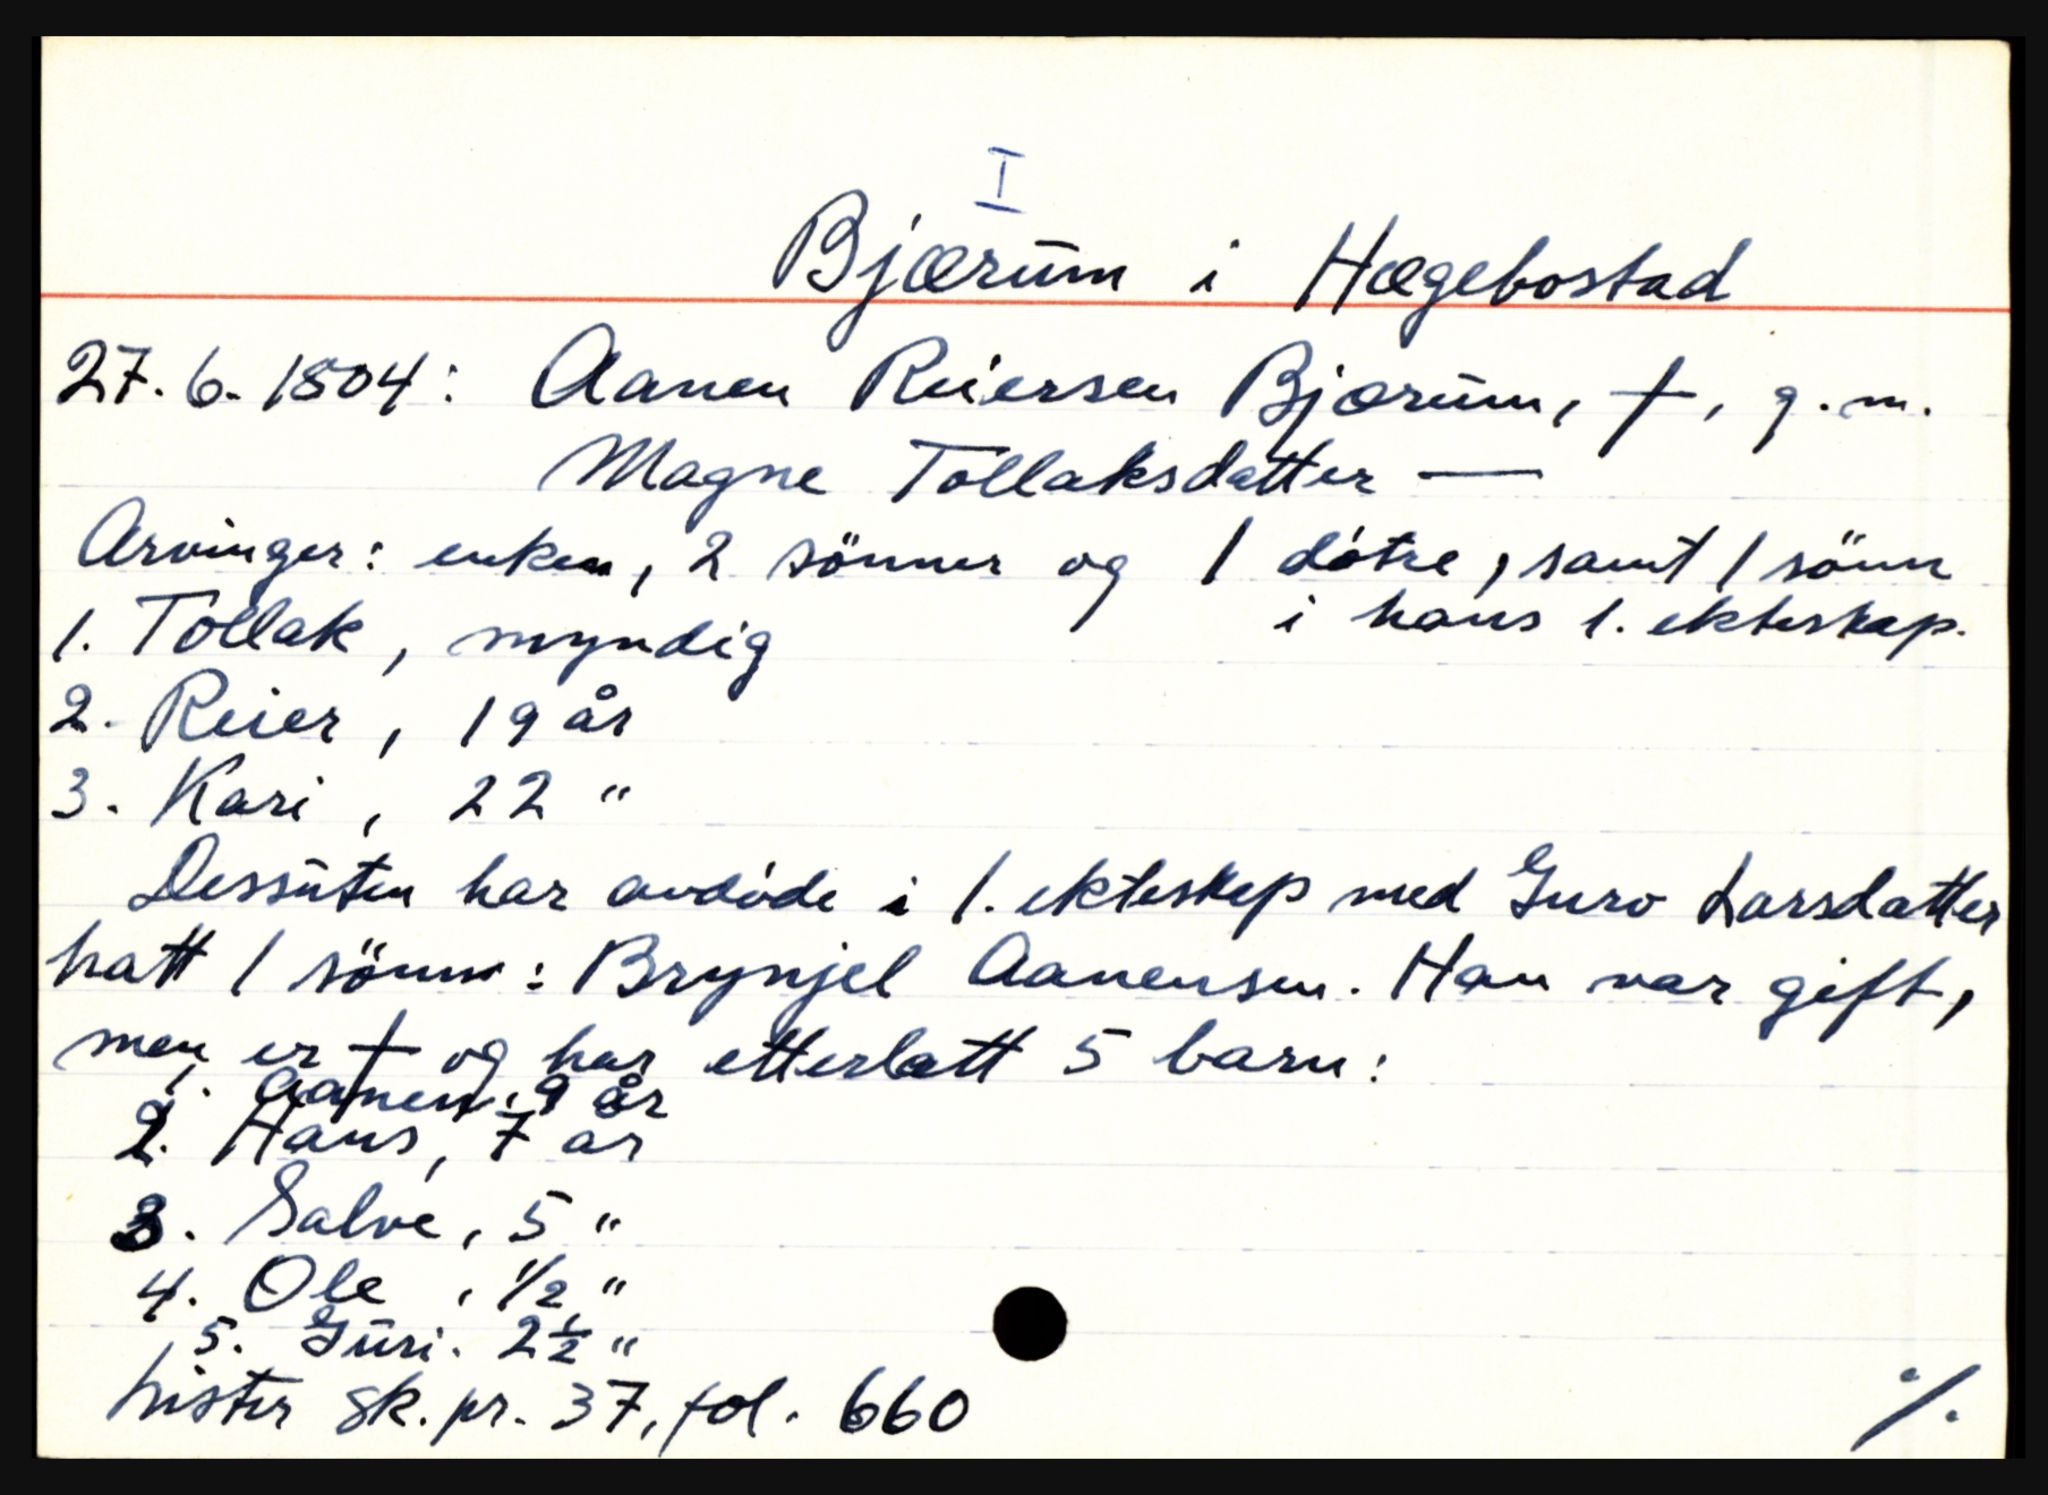 I
Bjærum i Hægebostad
27.6.1804: Aanen Reiersen Bjærum, †, g.m.
Magne Tollaksdatter —
Arvinger: enken, 2 sönner og 1 døtre, samt 1 sönn
i hans 1. ekteskap.
1. Tollak, myndig
2. Reier, 19 år
3. Kari, 22 "
Dessuten har avdøde i 1. ekteskap med Guro Larsdatter
hatt 1 sönn: Brynjel Aanensen. Han var gift,
men er † og har etterlatt 5 barn:
1. Aanen, 9 år
2. Hans, 7 år
3. Salve, 5 "
4. Ole, 1/2 "
5. Guri. 2 1/2 "
Lister sk.pr. 37, fol. 660
./.